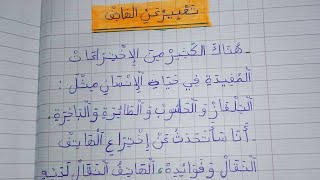 تَعْبِيرٌ عَنِ الْهَاتِفِ
- هُنَاكَ الْكَثِيرُ مِنَ الْإِخْتِرَاعَاتِ
الْمُفِيدَةِ فِي حَيَاتِ الْإِنْسَانِ مِثْلَ :
التِّلْفَازُ وَ الْحَاسُوبُ وَ الطَّائِرَةُ وَ الْبَاخِرَةُ.
- أَنَا سَأَتَحَدَّثُ عَنْ إِخْتِرَاعِ الْهَاتِفِ
النَّقَّالِ وَ فَوَائِدِهِ، الْهَاتِفُ النَّقَّالُ لَدَيْهِ